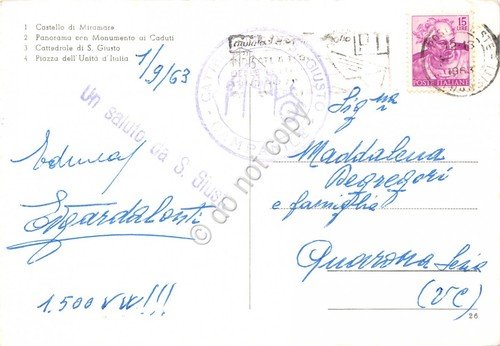 1 Castello di Miramare
2 Panorama con Monumento ai Caduti
3 Cattedrale di S. Giusto
4 Piazza dell'Unità d'Italia
1/9/63
Un saluto da S. Giusto
1.500 VW!!!
15
POSTE ITALIANE
Sig.na
Maddalena
Degregori
e famiglia
Quarona Sesia
(VC)
26
do not copy